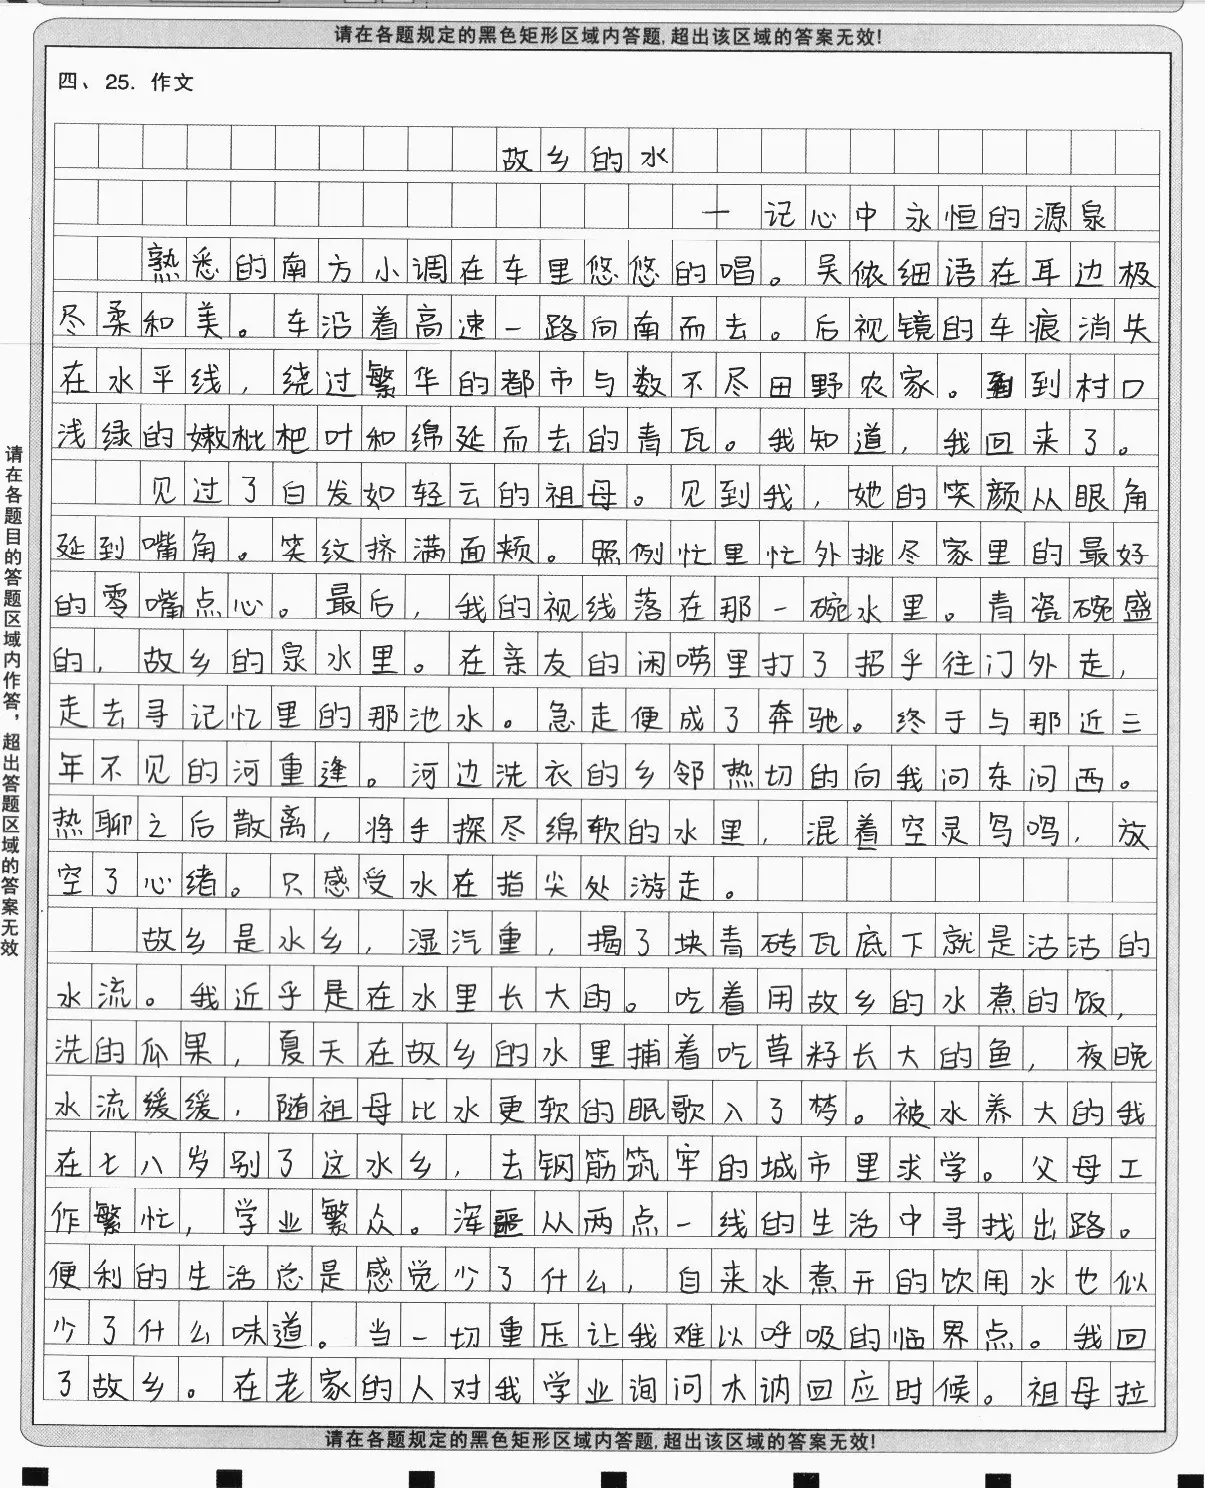 请在各题规定的黑色矩形区域内答题,超出该区域的答案无效!
四、25. 作文
故乡的水
一 记心中永恒的源泉
熟悉的南方小调在车里悠悠的唱。吴侬细语在耳边极
尽柔和美。车沿着高速一路向南而去。后视镜的车痕消失
在水平线，绕过繁华的都市与数不尽田野农家。到村口
浅绿的嫩枇杷叶和绵延而去的青瓦。我知道，我回来了。
见过了白发如轻云的祖母。见到我，她的笑颜从眼角
延到嘴角。笑纹挤满面颊。照例忙里忙外挑尽家里的最好
的零嘴点心。最后，我的视线落在那一碗水里。青瓷碗盛
的，故乡的泉水里。在亲友的闲唠里打了招乎往门外走，
走去寻记忆里的那池水。急走便成了奔驰。终于与那近三
年不见的河重逢。河边洗衣的乡邻热切的向我问东问西。
热聊之后散离，将手探尽绵软的水里，混着空灵鸟鸣，放
空了心绪。只感受水在指尖处游走。
故乡是水乡，湿汽重，揭了块青砖瓦底下就是沽沽的
水流。我近乎是在水里长大的。吃着用故乡的水煮的饭，
洗的瓜果，夏天在故乡的水里捕着吃草籽长大的鱼，夜晚
水流缓缓，随祖母比水更软的眠歌入了梦。被水养大的我
在七八岁别了这水乡，去钢筋筑牢的城市里求学。父母工
作繁忙，学业繁众。浑噩从两点一线的生活中寻找出路。
便利的生活总是感觉少了什么，自来水煮开的饮用水也似
少了什么味道。当一切重压让我难以呼吸的临界点。我回
了故乡。在老家的人对我学业询问木讷回应时候。祖母拉
请在各题规定的黑色矩形区域内答题,超出该区域的答案无效!
请在各题目的答题区域内作答，超出答题区域的答案无效